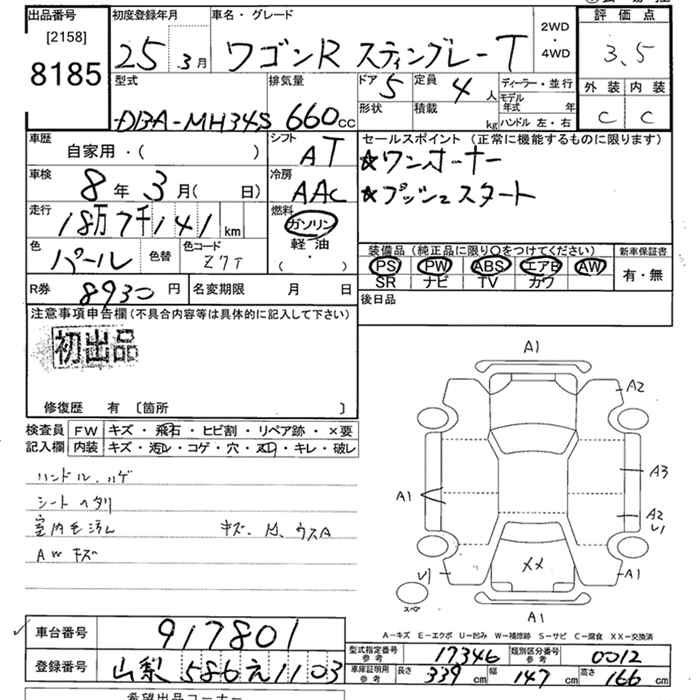 出品番号 初度登録年月 車名・グレード 2WD・4WD 評価点
[2158]
8185 25年3月 ワゴンR スティングレーT 3.5
型式 排気量 ドア 5 定員 4人 ディーラー・並行 外装 内装
形状 積載 kg モデル年式 年
DBA-MH34S 660cc ハンドル 左・右 C C
車歴 シフト セールスポイント (正常に機能するものに限ります)
自家用・( ) AT ☆ワンオーナー
車検 冷房
8年3月( 日) AAC ☆プッシュスタート
走行 燃料
18万7千141km ガソリン
色 色替 色コード 軽油 装備品 (純正品に限り○をつけてください) 新車保証書
パール Z7T ( ・ ) PS PW ABS エアB AW 有・無
SR ナビ TV カワ
R券 8930円 名変期限 月 日 後日品
注意事項申告欄(不具合内容等は具体的に記入して下さい)
初出品
修復歴 有 〔箇所 〕
検査員 FW キズ・飛石・ヒビ割・リペア跡・×要
記入欄 内装 キズ・汚レ・コゲ・穴・スレ・キレ・破レ
ハンドル.ハゲ
シートヘタリ
室内毛汚レ キズ.凹.ウスA
AWキズ
A1
A2
A3
A1
A2
U1
U1 XX A1
スペア
A1
A-キズ E-エクボ U-凹み W-補修跡 S-サビ C-腐食 XX-交換済
車台番号 917801
型式指定番号 参考 17346 類別区分番号 参考 0012
登録番号 山梨 586 え 1103
車庫証明用 参考 長さ 339cm 幅 147cm 高さ 166cm
希望出品コーナー